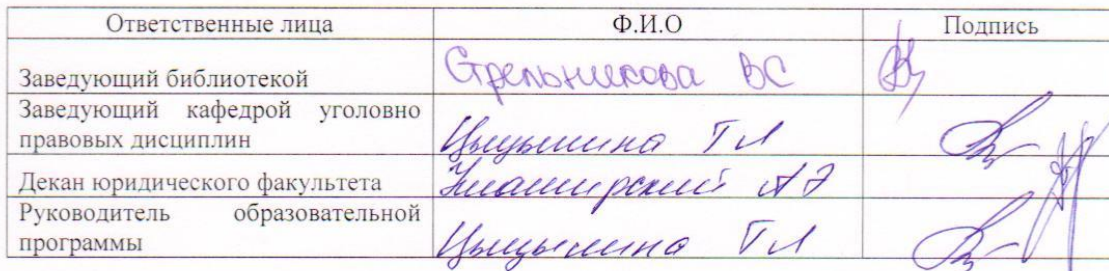 Ответственные лица Ф.И.О Подпись
Заведующий библиотекой Стрельникова ВС
Заведующий кафедрой уголовно
правовых дисциплин
Декан юридического факультета
Руководитель образовательной
программы